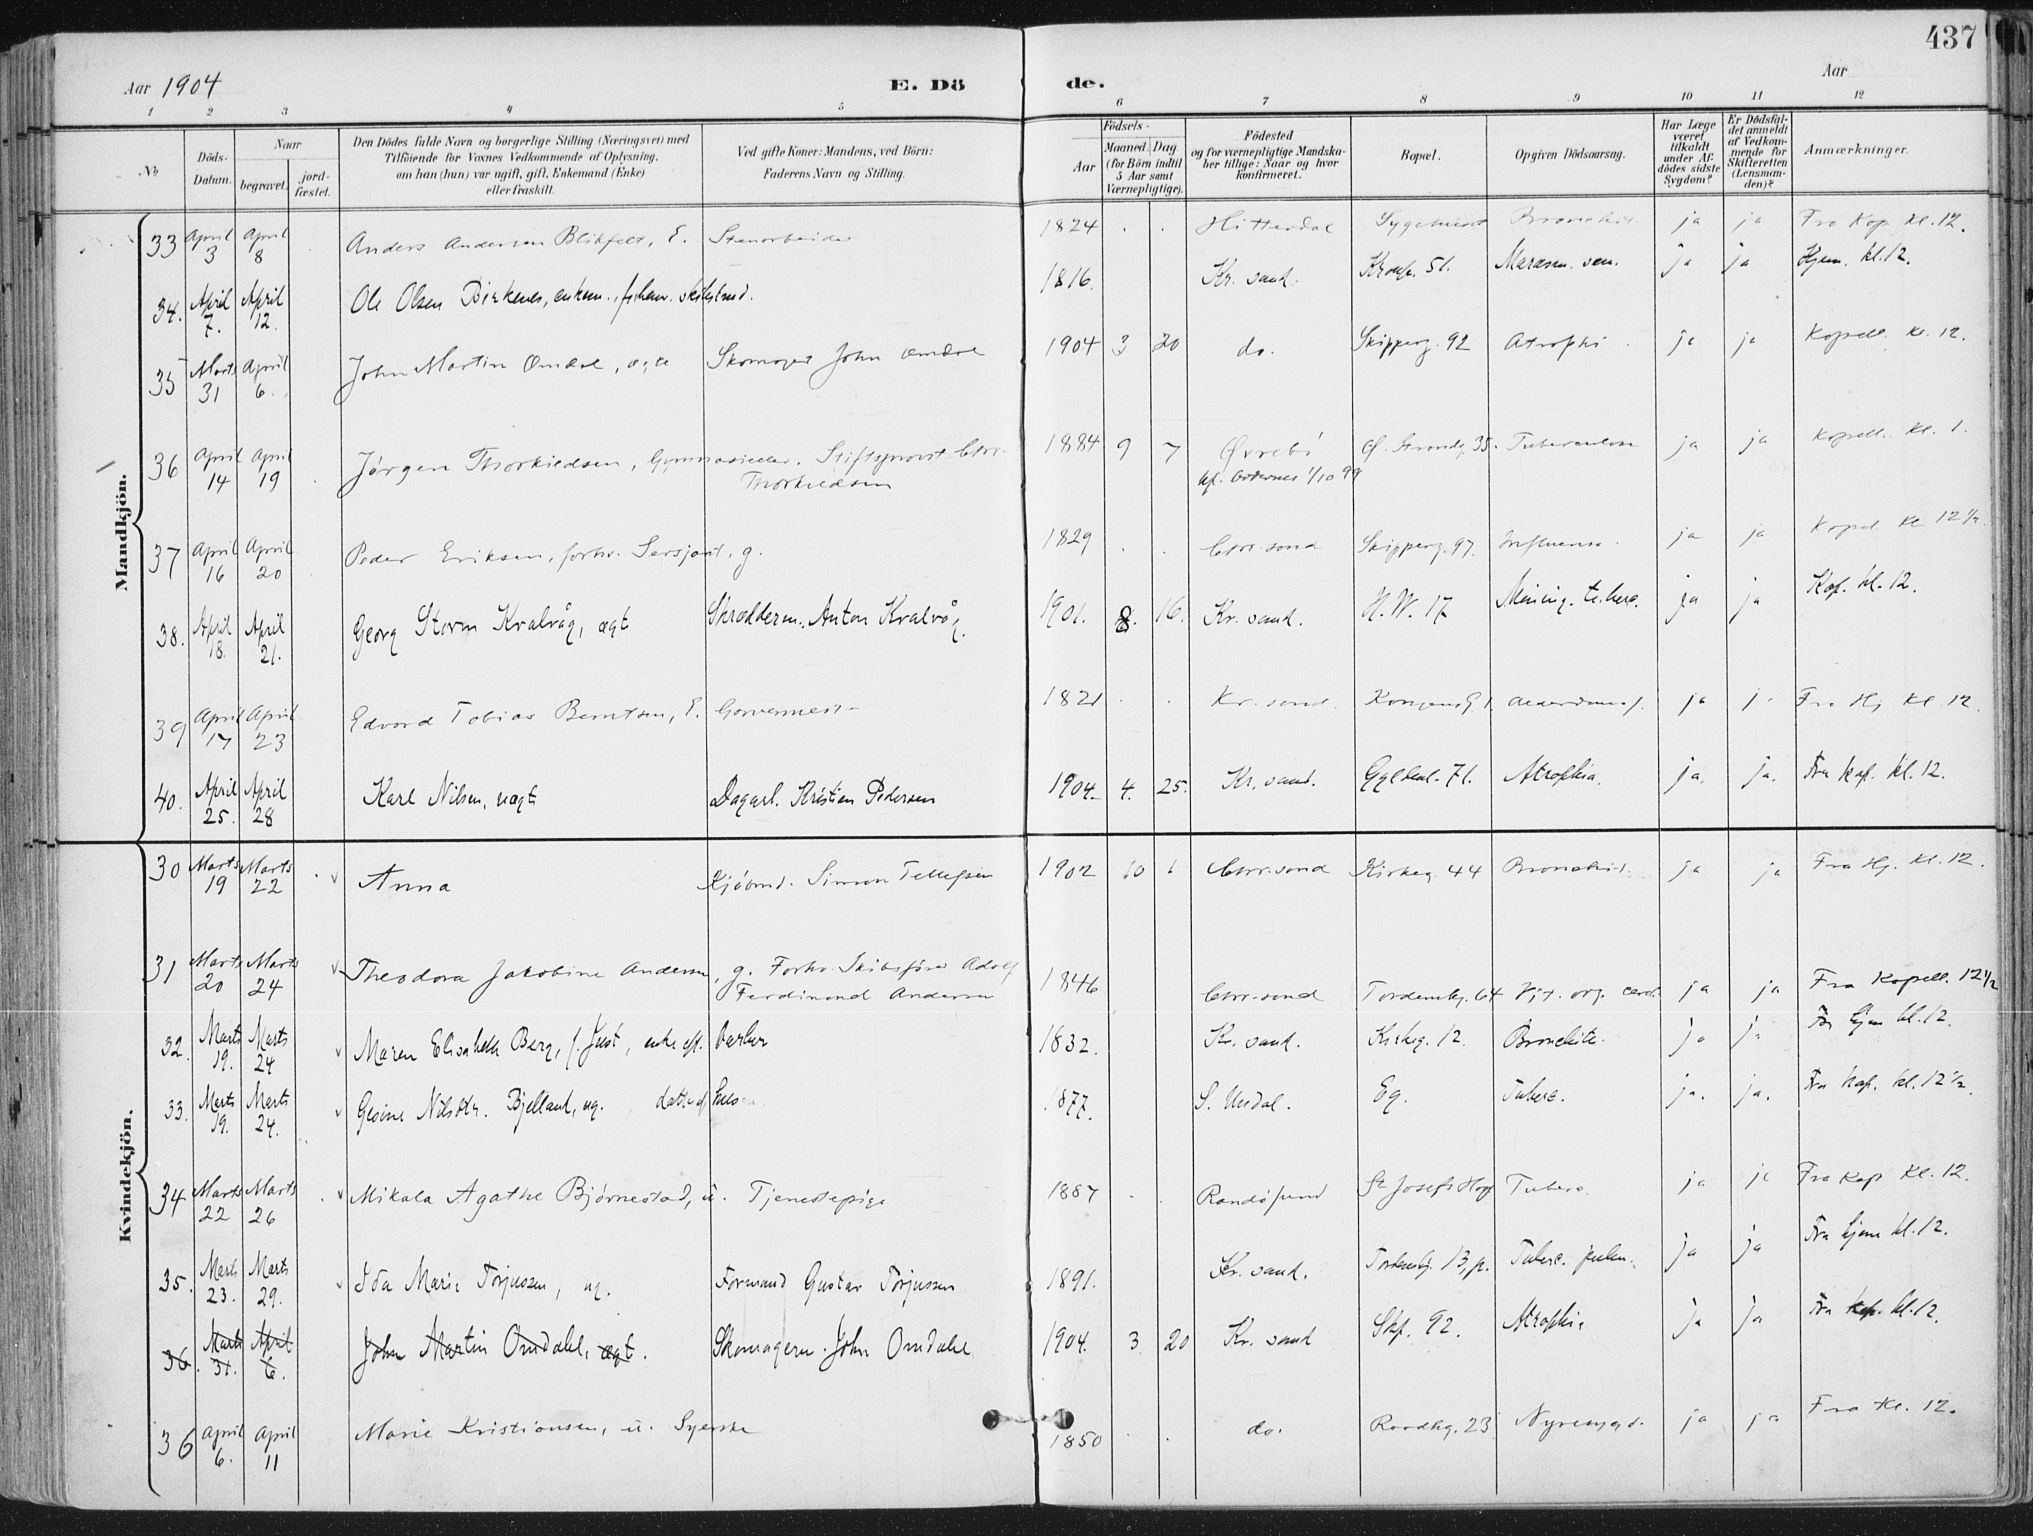 437
Aar 1904 E. Dö de. Aar
1 2 3 4 5 6 7 8 9 10 11 12
No
Döds-Datum.
Naar
begravet. jord-fæstet.
Den Dödes fulde Navn og borgerlige Stilling (Næringsvei) med
Tilföiende for Voxnes Vedkommende af Oplysning,
om han (hun) var ugift, gift, Enkemand (Enke)
eller fraskilt.
Ved gifte Koner: Mandens, ved Börn:
Faderens Navn og Stilling.
Födsels-
Aar Maaned. Dag.
(for Börn indtil
5 Aar samt
Værnepligtige).
Födested
og for værnepligtige Mandska-
ber tillige: Naar og hvor
konfirmeret.
Bopæl.
Opgiven Dödsaarsag.
Har Læge
været
tilkaldt
under Af-
dödes sidste
Sygdom?
Er Dödsfal-
det anmeldt
af Vedkom-
mende for
Skifteretten
(Lensman-
den)?
Anmærkninger.
Mandkjön.
33 April 3 April 8 Anders Andersen Blikfelt, E. Stenarbeider 1824 Hitterdal ja ja Fra Kap. kl. 12.
34. April 7. April 12. Ole Olsen Birkenes, enkem., 1816. Kr. sand. 51. Marasm. sen. ja ja Hjem. kl. 12.
35 Marts 31 April 6. John Martin Omdal, ægte Skomager John Omdal 1904 3 20 do. Skipperg. 92 Atrophi ja ja Kapell. kl. 12.
36 April 14 April 19 Jörgen Thorkildsen, Stiftsprovst Chr.
Thorkildsen 1884 9 7 Øvrebö Ø. Strandg. 35. Tuberculose ja ja Kapell. kl. 1.
kf. Oddernes 1/10 99
37 April 16 April 20 Peder Eriksen, forhv. Sersjant, g. 1829 Chr.sand Skipperg. 97. Influensa ja ja Kapel kl 12 1/2.
38. April 18. April 21. Georg Storm Kvalvåg, ægt Skrædderm. Anton Kvalvåg. 1901. 8. 16. Kr. sand. H. W. 17 Mening. tuberc. ja ja Kap. kl. 12.
39 April 17 April 23 Edvard Tobias Berntsen, E. 1821 Kr. sand. Kongensg. 1 ja ja Fra Hj kl 12.
40. April 25. April 28 Karl Nilsen, uægt Dagarb. Kristian Pedersen 1904 4. 25. Kr. sand. 71. Atrophia. ja. ja. Fra kap. kl. 12.
Kvindekjön.
30 Marts 19 Marts 22 v Anna Kjöbmd. Simon Tellefsen 1902 10 1 Chr.sand Kirkeg. 44 Bronchit. ja ja Fra Hj. kl. 12.
31 Marts 20 Marts 24 v Theodora Jakobine Andersen, g. Forhv. Skibsförer Adolf
Ferdinand Andersen 1846 Chr.sand Tordenskg. 64 Vit. org. cord. ja ja Fra Kapell. 12 1/2
32. Marts 19. Marts 24 v Maren Elisabeth Berg, f. Just, enke eft. 1832. Kr. sand. Kirkeg. 12. Bronchite. ja ja. Fra hjem kl. 12.
33. Marts 19. Marts 24. v Gesine Nilsdtr. Bjelland, ug., 1877. S. Undal. Eg. Tuberc. ja. ja. Fra kap. kl. 12 1/2.
34 Marts 22 Marts 26 v Mikala Agathe Bjørnestad, u. Tjenestepige 1887 Randösund St Josefs Hosp Tuberc. ja ja Fra Kap kl. 12.
35. Marts 23. Marts 29. v Ida Marie Torjussen, ug. Formand Gustav Torjussen 1891. Kr. sand. Tordenskg. 13, p. Tuberc. pulm. ja ja Fra hjem kl. 12.
36. Marts 31. April 6. John Martin Omdahl, ægt. Skomagerm. John Omdahl 1904. 3 20 Kr. sand Skp. 92. Atrophia ja ja Fra kap. kl. 12.
36 April 6. April 11 Marie Kristiansen, u. Syerske 1850 do. 23 Nyresygd. ja ja Fra kl. 12.